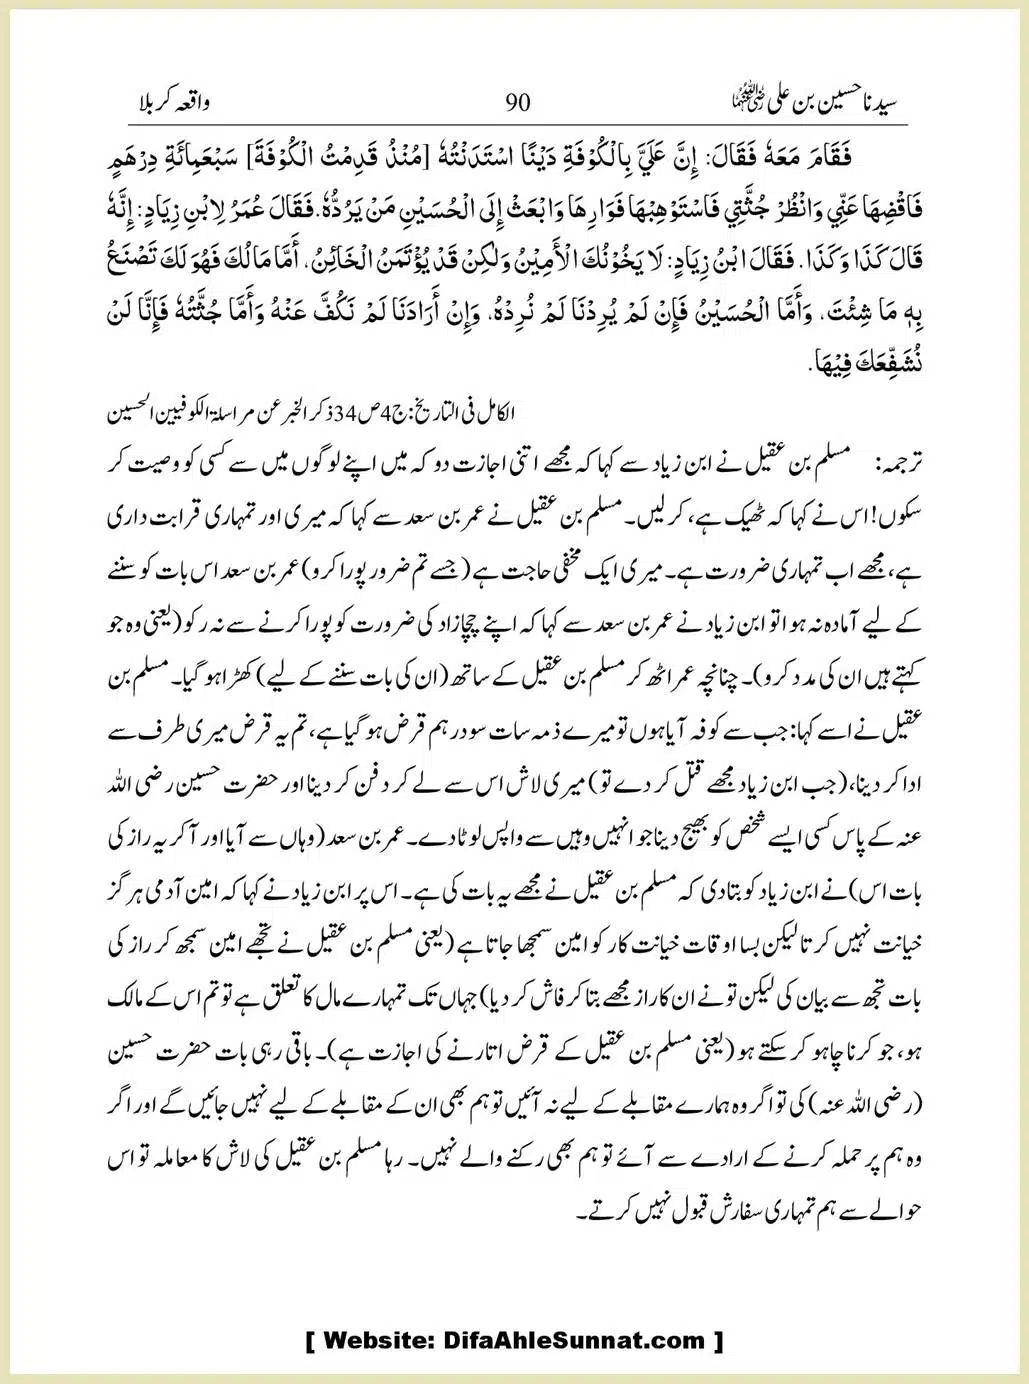 سیدنا حسین بن علی رضی اللہ عنہما 90 واقعہ کربلا
فَقَامَ مَعَهٗ فَقَالَ: إِنَّ عَلَيَّ بِالْكُوْفَةِ دَيْنًا اسْتَدَنْتُهٗ [مُنْذُ قَدِمْتُ الْكُوْفَةَ] سَبْعَمِائَةِ دِرْهَمٍ
فَاقْضِهَا عَنِّي وَانْظُرْ جُثَّتِي فَاسْتَوْهِبْهَا فَوَارِهَا وَابْعَثْ إِلَى الْحُسَيْنِ مَنْ يَرُدُّهٗ. فَقَالَ عُمَرُ لِابْنِ زِيَادٍ: إِنَّهٗ
قَالَ كَذَا وَكَذَا. فَقَالَ ابْنُ زِيَادٍ: لَا يَخُوْنُكَ الْأَمِيْنُ وَلٰكِنْ قَدْ يُؤْتَمَنُ الْخَائِنُ. أَمَّا مَالُكَ فَهُوَ لَكَ تَصْنَعُ
بِهٖ مَا شِئْتَ، وَأَمَّا الْحُسَيْنُ فَإِنْ لَمْ يُرِدْنَا لَمْ نُرِدْهُ، وَإِنْ أَرَادَنَا لَمْ نَكُفَّ عَنْهُ وَأَمَّا جُثَّتُهٗ فَإِنَّا لَنْ
نُشَفِّعَكَ فِيْهَا.
الکامل فی التاریخ: ج4 ص34 ذکر الخبر عن مراسلۃ الکوفیین الحسین
ترجمہ: مسلم بن عقیل نے ابن زیاد سے کہا کہ مجھے اتنی اجازت دو کہ میں اپنے لوگوں میں سے کسی کو وصیت کر
سکوں! اس نے کہا کہ ٹھیک ہے، کر لیں۔ مسلم بن عقیل نے عمر بن سعد سے کہا کہ میری اور تمہاری قرابت داری
ہے، مجھے اب تمہاری ضرورت ہے۔ میری ایک مخفی حاجت ہے (جسے تم ضرور پورا کرو) عمر بن سعد اس بات کو سننے
کے لیے آمادہ نہ ہوا تو ابن زیاد نے عمر بن سعد سے کہا کہ اپنے چچازاد کی ضرورت کو پورا کرنے سے نہ رکو (یعنی وہ جو
کہتے ہیں ان کی مدد کرو)۔ چنانچہ عمر اٹھ کر مسلم بن عقیل کے ساتھ (ان کی بات سننے کے لیے) کھڑا ہو گیا۔ مسلم بن
عقیل نے اسے کہا: جب سے کوفہ آیا ہوں تو میرے ذمہ سات سو درہم قرض ہو گیا ہے، تم یہ قرض میری طرف سے
ادا کر دینا، (جب ابن زیاد مجھے قتل کر دے تو) میری لاش اس سے لے کر دفن کر دینا اور حضرت حسین رضی اللہ
عنہ کے پاس کسی ایسے شخص کو بھیج دینا جو انہیں وہیں سے واپس لوٹا دے۔ عمر بن سعد (وہاں سے آیا اور آ کر یہ راز کی
بات اس) نے ابن زیاد کو بتا دی کہ مسلم بن عقیل نے مجھے یہ بات کی ہے۔ اس پر ابن زیاد نے کہا کہ امین آدمی ہرگز
خیانت نہیں کرتا لیکن بسا اوقات خیانت کار کو امین سمجھا جاتا ہے (یعنی مسلم بن عقیل نے تجھے امین سمجھ کر راز کی
بات تجھ سے بیان کی لیکن تو نے ان کا راز مجھے بتا کر فاش کر دیا) جہاں تک تمہارے مال کا تعلق ہے تو تم اس کے مالک
ہو، جو کرنا چاہو کر سکتے ہو (یعنی مسلم بن عقیل کے قرض اتارنے کی اجازت ہے)۔ باقی رہی بات حضرت حسین
(رضی اللہ عنہ) کی تو اگر وہ ہمارے مقابلے کے لیے نہ آئیں تو ہم بھی ان کے مقابلے کے لیے نہیں جائیں گے اور اگر
وہ ہم پر حملہ کرنے کے ارادے سے آئے تو ہم بھی رکنے والے نہیں۔ رہا مسلم بن عقیل کی لاش کا معاملہ تو اس
حوالے سے ہم تمہاری سفارش قبول نہیں کرتے۔
[ Website: DifaAhleSunnat.com ]